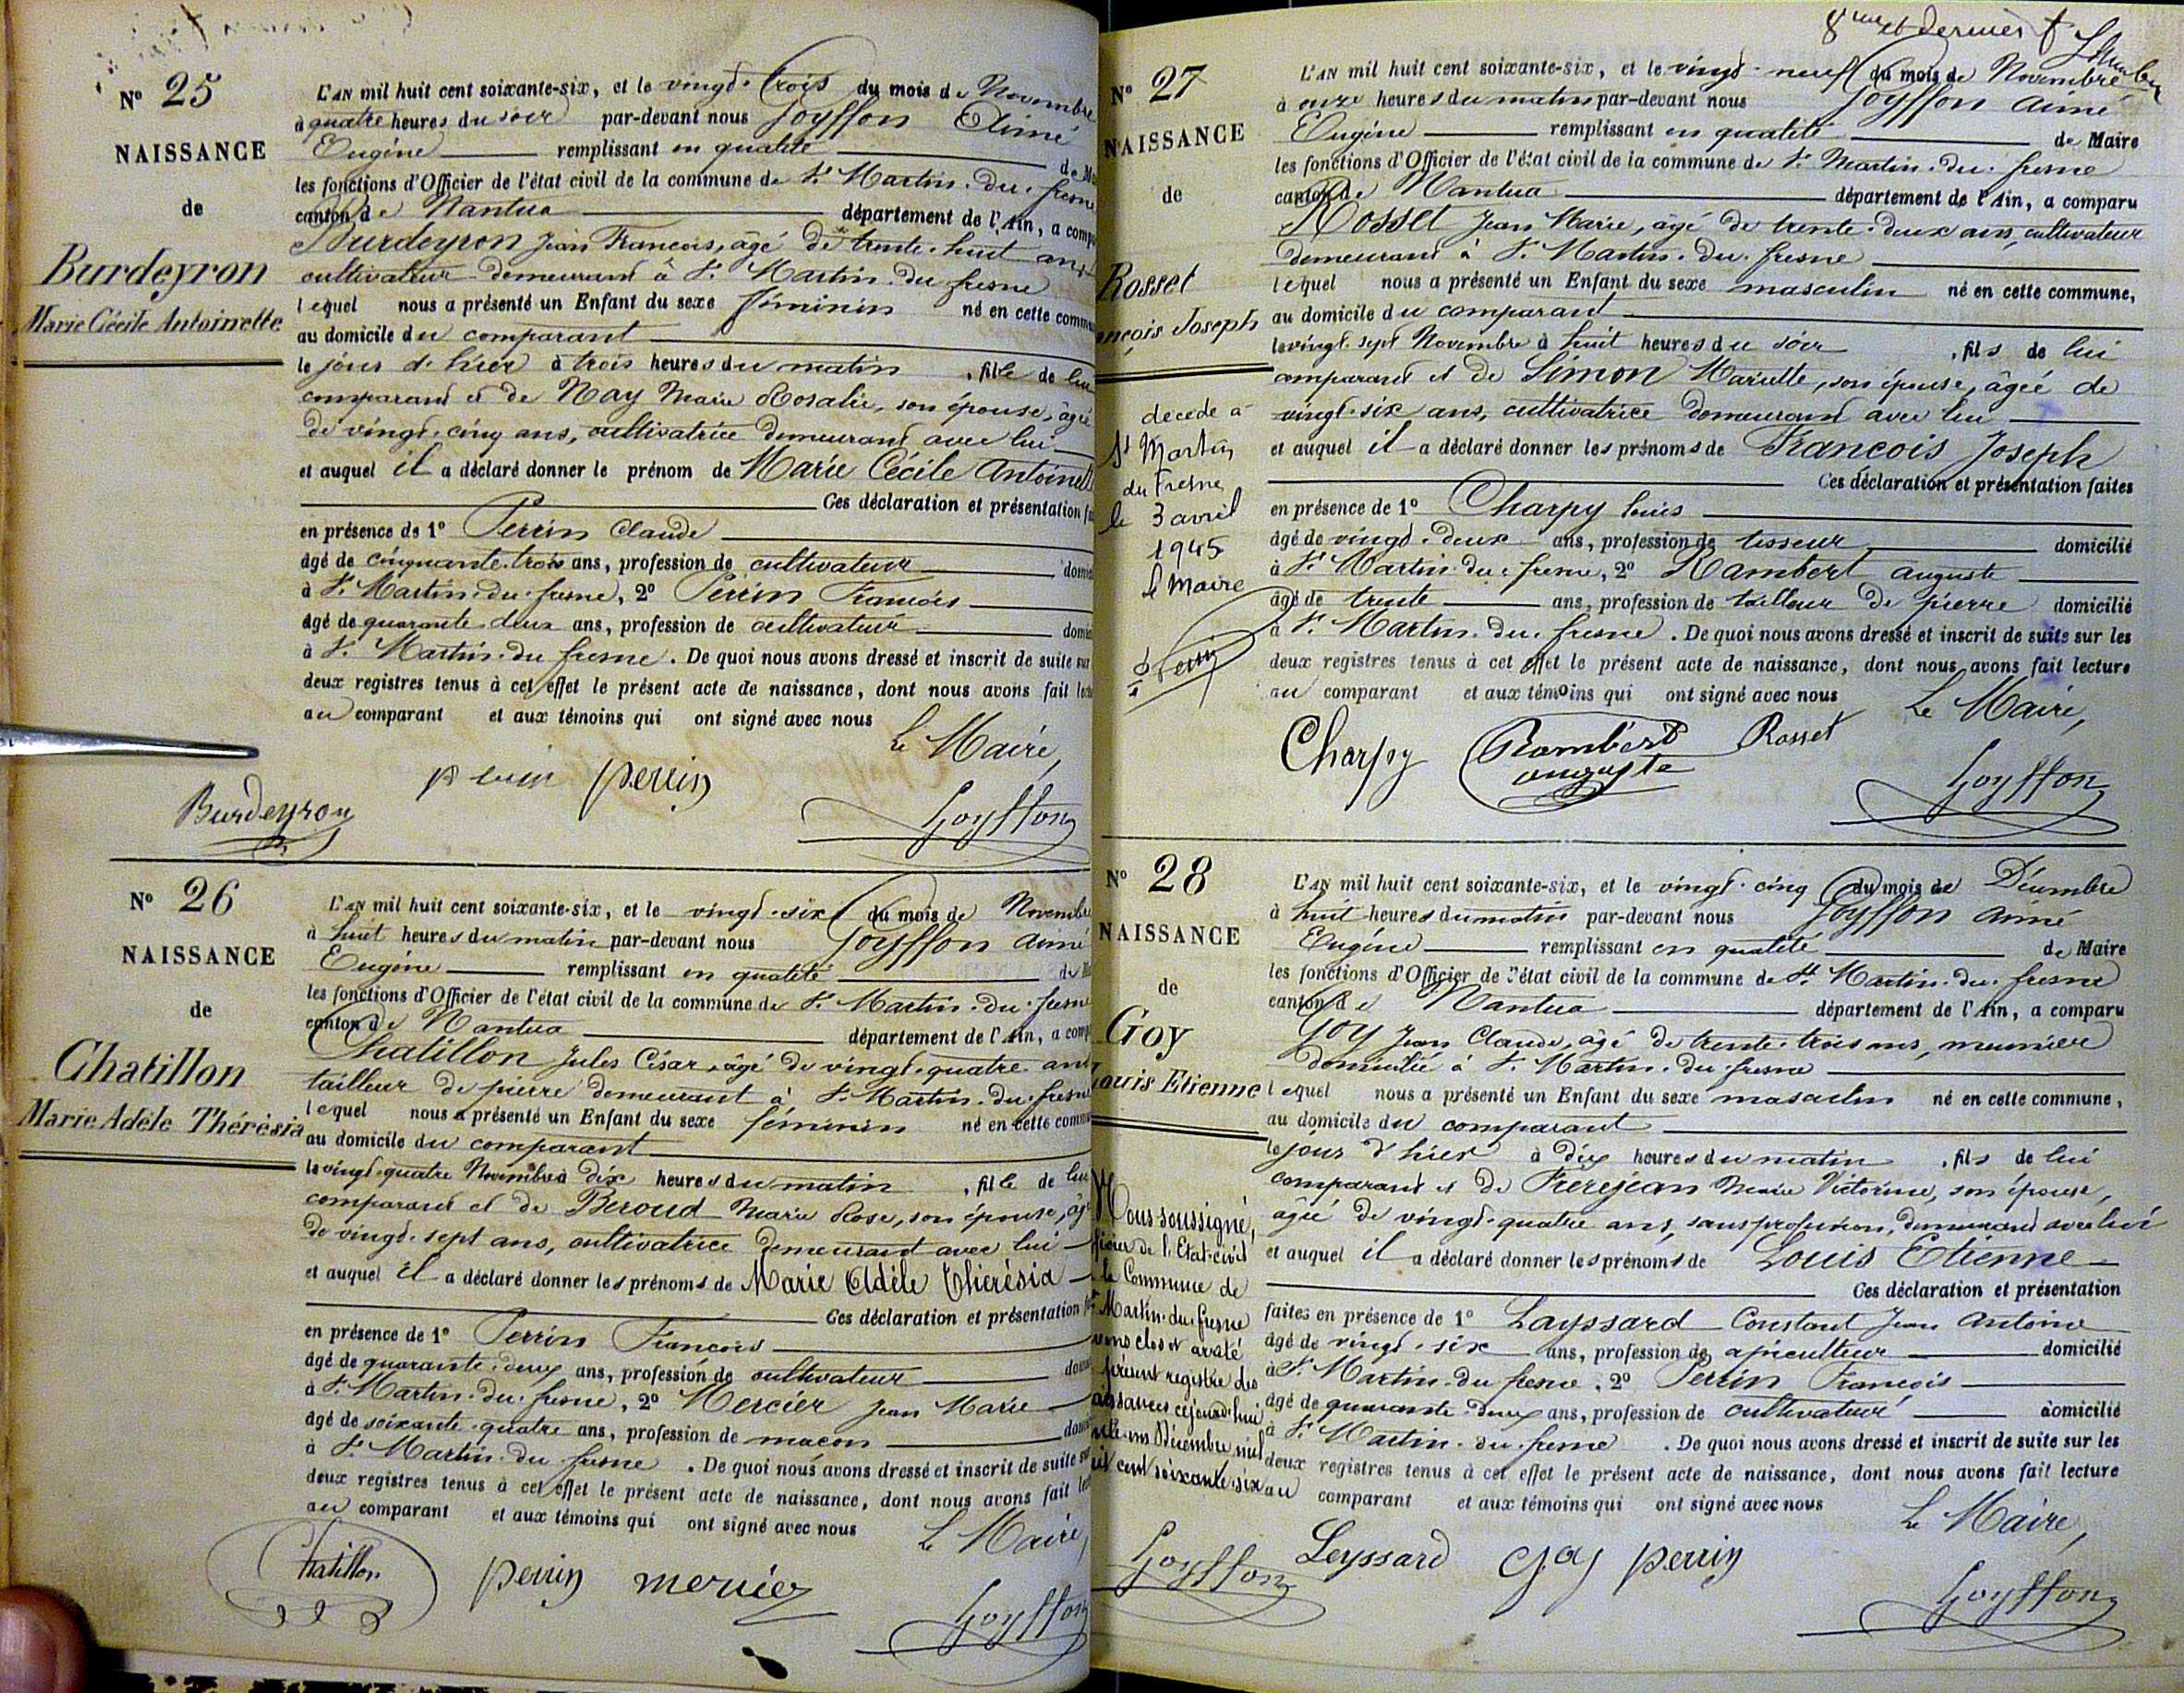 N° 25
NAISSANCE
de
Burdeyron
Marie Cécile Antoinette
L'AN mil huit cent soixante-six, et le vingt-trois du mois de Novembre
à quatre heures du soir par-devant nous Goyffon Aimé
Eugène remplissant en qualité de M
les fonctions d'Officier de l'état civil de la commune de St Martin-du-fresne
canton de Nantua département de l'Ain, a comp
Burdeyron Jean François, âgé de trente-huit ans
cultivateur demeurant à St Martin-du-fresne
lequel nous a présenté un Enfant du sexe féminin né en cette comm
au domicile du comparant
le jour d'hier à trois heures du matin , fille de lui
comparant et de Nay Marie Rosalie, son épouse, âgée
de vingt-cinq ans, cultivatrice demeurant avec lui
et auquel il a déclaré donner le prénom de Marie Cécile Antoinett
Ces déclaration et présentation
en présence de 1° Perrin Claude
âgé de cinquante-trois ans, profession de cultivateur domi
à St Martin-du-fresne, 2° Perrin François
âgé de quarante-deux ans, profession de cultivateur domi
à St Martin-du-fresne. De quoi nous avons dressé et inscrit de suite sur
deux registres tenus à cet effet le présent acte de naissance, dont nous avons fait lect
au comparant et aux témoins qui ont signé avec nous
Le Maire,
Burdeyron perrin Goyffon
N° 26
NAISSANCE
de
Chatillon
Marie Adèle Thérésia
L'AN mil huit cent soixante-six, et le vingt-six du mois de Novembre
à huit heures du matin par-devant nous Goyffon Aimé
Eugène remplissant en qualité de
les fonctions d'Officier de l'état civil de la commune de St Martin-du-fresne
canton de Nantua département de l'Ain, a comp
Chatillon Jules César, âgé de vingt-quatre ans
tailleur de pierre demeurant à St Martin-du-fresne
lequel nous a présenté un Enfant du sexe féminin né en cette comm
au domicile du comparant
le vingt-quatre Novembre à dix heures du matin , fille de lui
comparant et de Beroud Marie Rose, son épouse, âg
de vingt-sept ans, cultivatrice demeurant avec lui
et auquel il a déclaré donner les prénoms de Marie Adèle Thérésia
Ces déclaration et présentation
en présence de 1° Perrin François
âgé de quarante-deux ans, profession de cultivateur
à St Martin-du-fresne, 2° Mercier Jean Marie
âgé de soixante-quatre ans, profession de maçon
à St Martin-du-fresne. De quoi nous avons dressé et inscrit de suite sur
deux registres tenus à cet effet le présent acte de naissance, dont nous avons fait lect
au comparant et aux témoins qui ont signé avec nous
Le Maire,
Chatillon perrin mercier Goyffon
8me et dernier f
N° 27
NAISSANCE
de
Rosset
ançois Joseph
décédé à
St Martin
du Fresne
le 3 avril
1945
le Maire
L'AN mil huit cent soixante-six, et le vingt-neuf du mois de Novembre
à onze heures du matin par-devant nous Goyffon Aimé
Eugène remplissant en qualité de Maire
les fonctions d'Officier de l'état civil de la commune de St Martin-du-fresne
canton de Nantua département de l'Ain, a comparu
Rosset Jean Marie, âgé de trente-deux ans, cultivateur
demeurant à St Martin-du-fresne
lequel nous a présenté un Enfant du sexe masculin né en cette commune,
au domicile du comparant
le vingt-sept Novembre à huit heures du soir , fils de lui
comparant et de Simon Mariette, son épouse, âgée de
vingt-six ans, cultivatrice demeurant avec lui
et auquel il a déclaré donner les prénoms de François Joseph
Ces déclaration et présentation faites
en présence de 1° Charpy Louis
âgé de vingt-deux ans, profession de tisseur domicilié
à St Martin-du-fresne, 2° Rambert Auguste
âgé de trente ans, profession de tailleur de pierre domicilié
à St Martin-du-fresne. De quoi nous avons dressé et inscrit de suite sur les
deux registres tenus à cet effet le présent acte de naissance, dont nous avons fait lecture
au comparant et aux témoins qui ont signé avec nous
Le Maire,
Charpy Rambert auguste Rosset Goyffon
N° 28
NAISSANCE
de
Goy
ouis Etienne
Nous soussigné,
ficier de l'Etat-civil
la Commune de
Martin-du-fresne
vons clos et arrêté
présent registre des
aissances cejourd'hui
nte-un Décembre mil
uit cent soixante-six
Goyffon
L'AN mil huit cent soixante-six, et le vingt-cinq du mois de Décembre
à huit heures du matin par-devant nous Goyffon Aimé
Eugène remplissant en qualité de Maire
les fonctions d'Officier de l'état civil de la commune de St Martin-du-fresne
canton de Nantua département de l'Ain, a comparu
Goy Jean Claude, âgé de trente-trois ans, meunier
domicilié à St Martin-du-fresne
lequel nous a présenté un Enfant du sexe masculin né en cette commune,
au domicile du comparant
le jour d'hier à dix heures du matin , fils de lui
comparant et de Frèrejean Marie Victorine, son épouse,
âgée de vingt-quatre ans, sans profession, demeurant avec lui
et auquel il a déclaré donner les prénoms de Louis Etienne
Ces déclaration et présentation
faites en présence de 1° Layssard Constant Jean Antoine
âgé de vingt-six ans, profession de apiculteur domicilié
à St Martin-du-fresne, 2° Perrin François
âgé de quarante-deux ans, profession de cultivateur domicilié
à St Martin-du-fresne. De quoi nous avons dressé et inscrit de suite sur les
deux registres tenus à cet effet le présent acte de naissance, dont nous avons fait lecture
au comparant et aux témoins qui ont signé avec nous
Le Maire,
Leyssard Goy perrin Goyffon